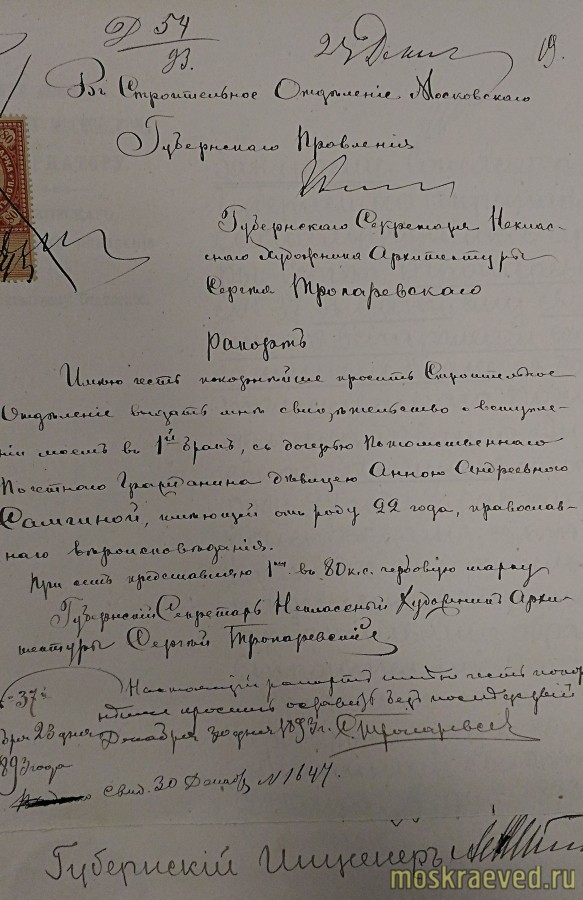 Д 54
93.
Декаб 19.
Въ Строительное Отдѣленіе Московскаго
Губернскаго Правленія
Губернскаго Секретаря Неклас-
снаго Художника Архитектуры
Сергѣя Тропаревскаго
рапортъ
Имѣю честь покорнѣйше просить Строительное
Отдѣленіе выдать мнѣ свидѣтельство о вступле-
ніи моемъ въ 1й бракъ, съ дочерью Потомственнаго
Почетнаго Гражданина дѣвицею Анною Андреевною
Самгиной, имѣющей отъ роду 22 года, православ-
наго вѣроисповѣданія.
При семъ представляю 1 въ 80 к. с. гербовую марку
Губернскій Секретарь Неклассный Художникъ Архи-
тектуры Сергѣй Тропаревскій
Настоящій рапортъ имѣю честь покор
нѣйше просить оставить безъ послѣдствій
Декабря 30 дня 1893 г. СТропаревскій
37
бря 23 дня
893 года
Свид. 30 Декабр N 1647.
Губернскій Инженеръ
moskraeved.ru